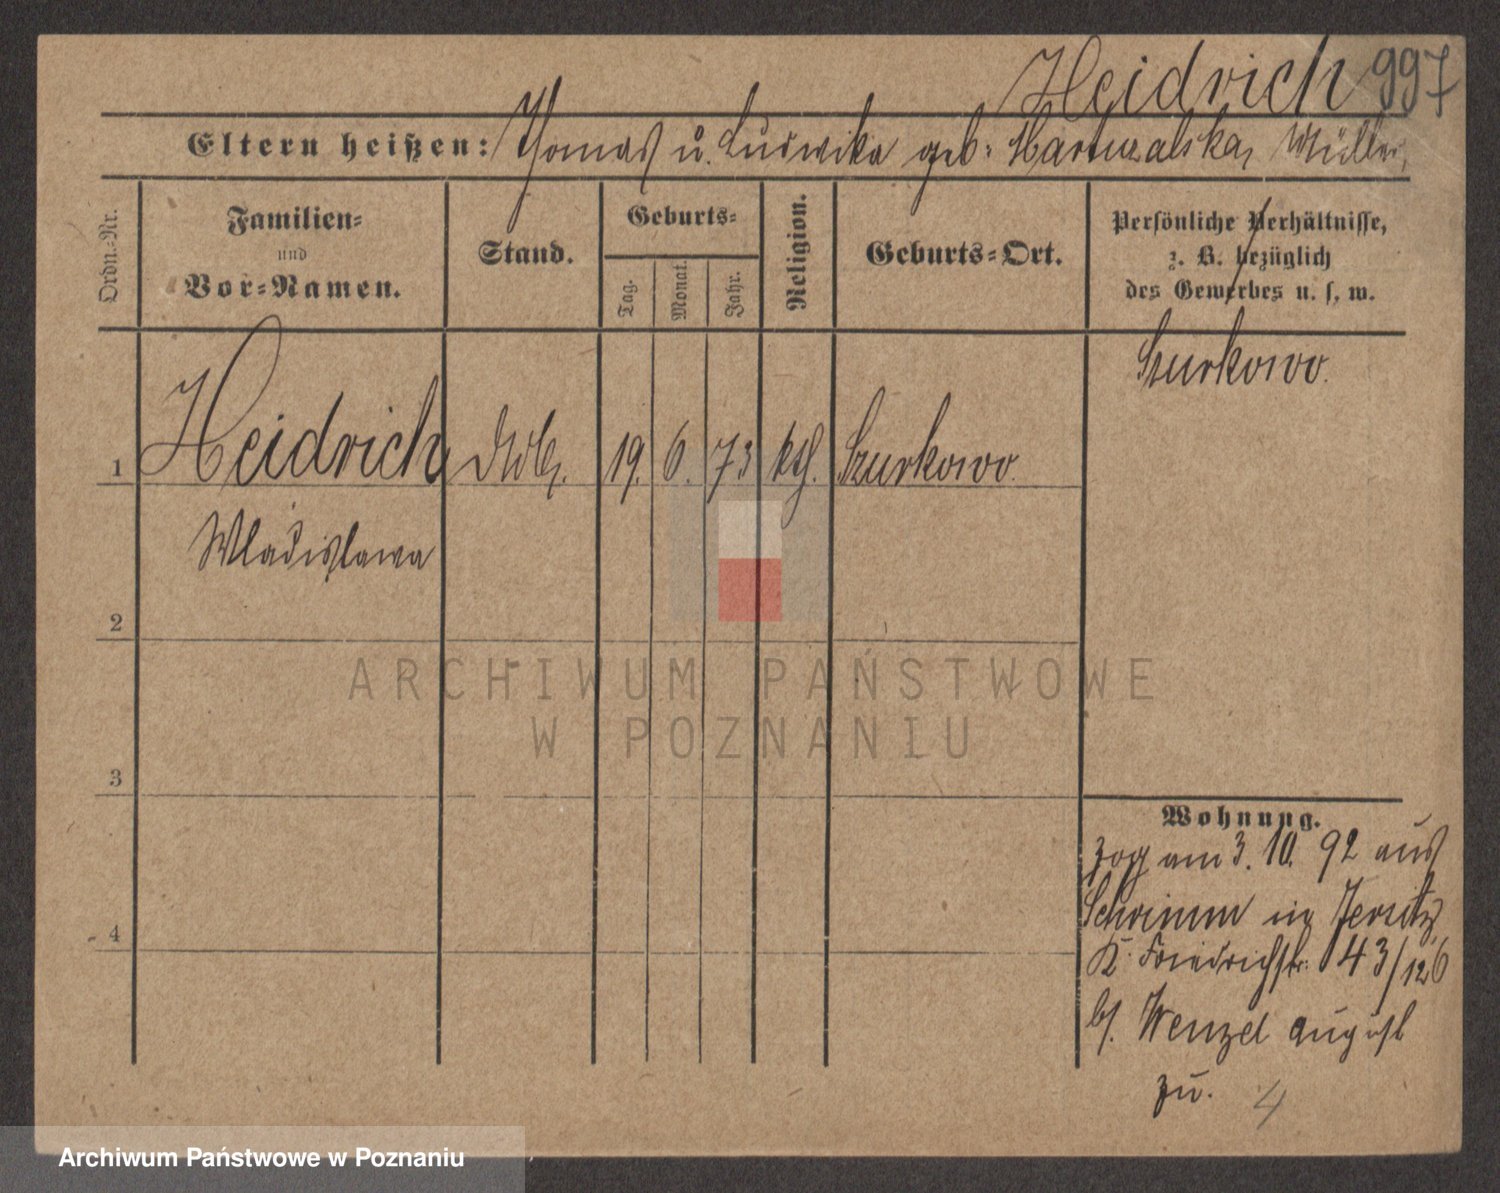 Heidrich 997
Eltern heißen: Thomas u. Ludwika geb. Martuzalska, Müller,
Ordn.-Nr.
Familien-
und
Vor-Namen.
Stand.
Geburts-
Tag.
Monat.
Jahr.
Religion.
Geburts-Ort.
Persönliche Verhältnisse,
z. B. bezüglich
des Gewerbes u. s. w.
1 Heidrich 19. 6. 73 kth. Szurkowo. Szurkowo.
Wladislawa
2
3
4
Wohnung.
zog am 3. 10. 92 aus
Schrimm in Jersitz
K. Friedrichstr. 43/126
bs. Wenzel August
zu. 4
ARCHIWUM PAŃSTWOWE
W POZNANIU
Archiwum Państwowe w Poznaniu